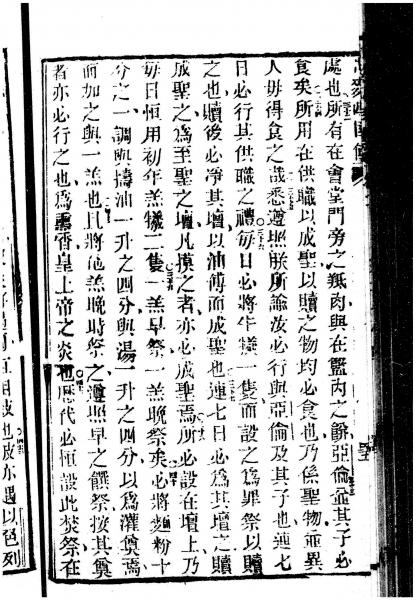 處也所有在會堂門旁之羝肉與在籃內之餅亞倫並其子必
食矣所用在供職以成聖以贖之物均必食也乃係聖物並異
人毋得食之哉悉遵照朕所諭汝必行與亞倫及其子也連七
日必行其供職之禮每日必將牛犢一隻而設之為罪祭以贖
之也贖後必淨其壇以油傅而成聖也連七日必為其壇之贖
成聖之為至聖之壇凡摸之者亦必成聖焉所必設在壇上乃
每日恒用初年羔犧二隻一羔早祭一羔晚祭矣必將麵粉十
分之一調與擣油一升之四分與湯一升之四分以為灌奠焉
而加之與一羔也且將他羔晚時祭之遵照早之饌祭按其奠
者亦必行之也為馨香皇上帝之炎也歷代必恒設此焚祭在
也彼亦遇以色列